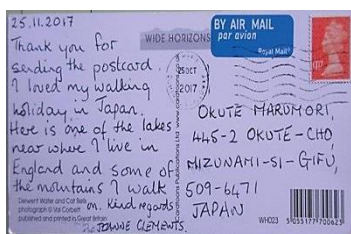 25.11.2017
Thank you for
sending the postcard.
I loved my walking
holiday in Japan.
Here is one of the lakes
near where I live in
England and some of
the mountains I walk
on. Kind regards
JOANNE CLEMENTS.
Derwent Water and Cat Bells
photograph © Val Corbett
published and printed in Great Britain
WIDE HORIZONS
BY AIR MAIL
par avion
Royal Mail
25 OCT
2017
OKUTE MARUMORI,
445-2 OKUTE-CHO
MIZUNAMI-SI-GIFU,
509-6471
JAPAN
WH023
5 055177 700623